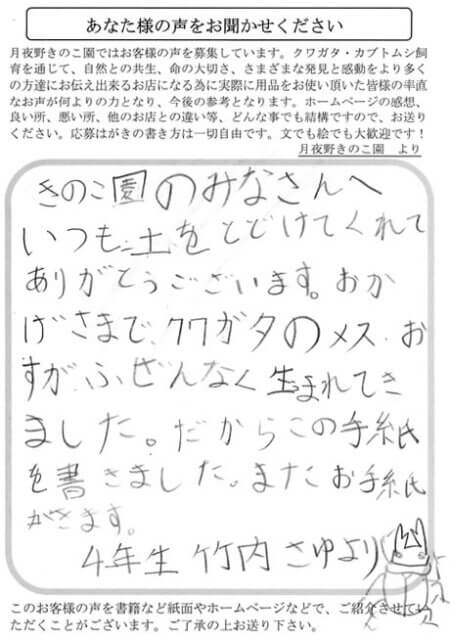 あなた様の声をお聞かせください
月夜野きのこ園ではお客様の声を募集しています。クワガタ・カブトムシ飼
育を通じて、自然との共生、命の大切さ、さまざまな発見と感動をより多く
の方達にお伝え出来るお店になる為に実際に用品をお使い頂いた皆様の率直
なお声が何よりの力となり、今後の参考となります。ホームページの感想、
良い所、悪い所、他のお店との違い等、どんな事でも結構ですので、お送り
ください。応募はがきの書き方は一切自由です。文でも絵でも大歓迎です！
月夜野きのこ園　より
きのこ園のみなさんへ
いつも土をとどけてくれて
ありがとうございます。おか
げさまで、クワガタのメス、お
すが、ふぜんなく生まれてき
ました。だからこの手紙
を書きました。またお手紙
がきます。
4年生 竹内 さゆより
このお客様の声を書籍など紙面やホームページなどで、ご紹介させてい
ただくことがございます。ご了承の上お送り下さい。